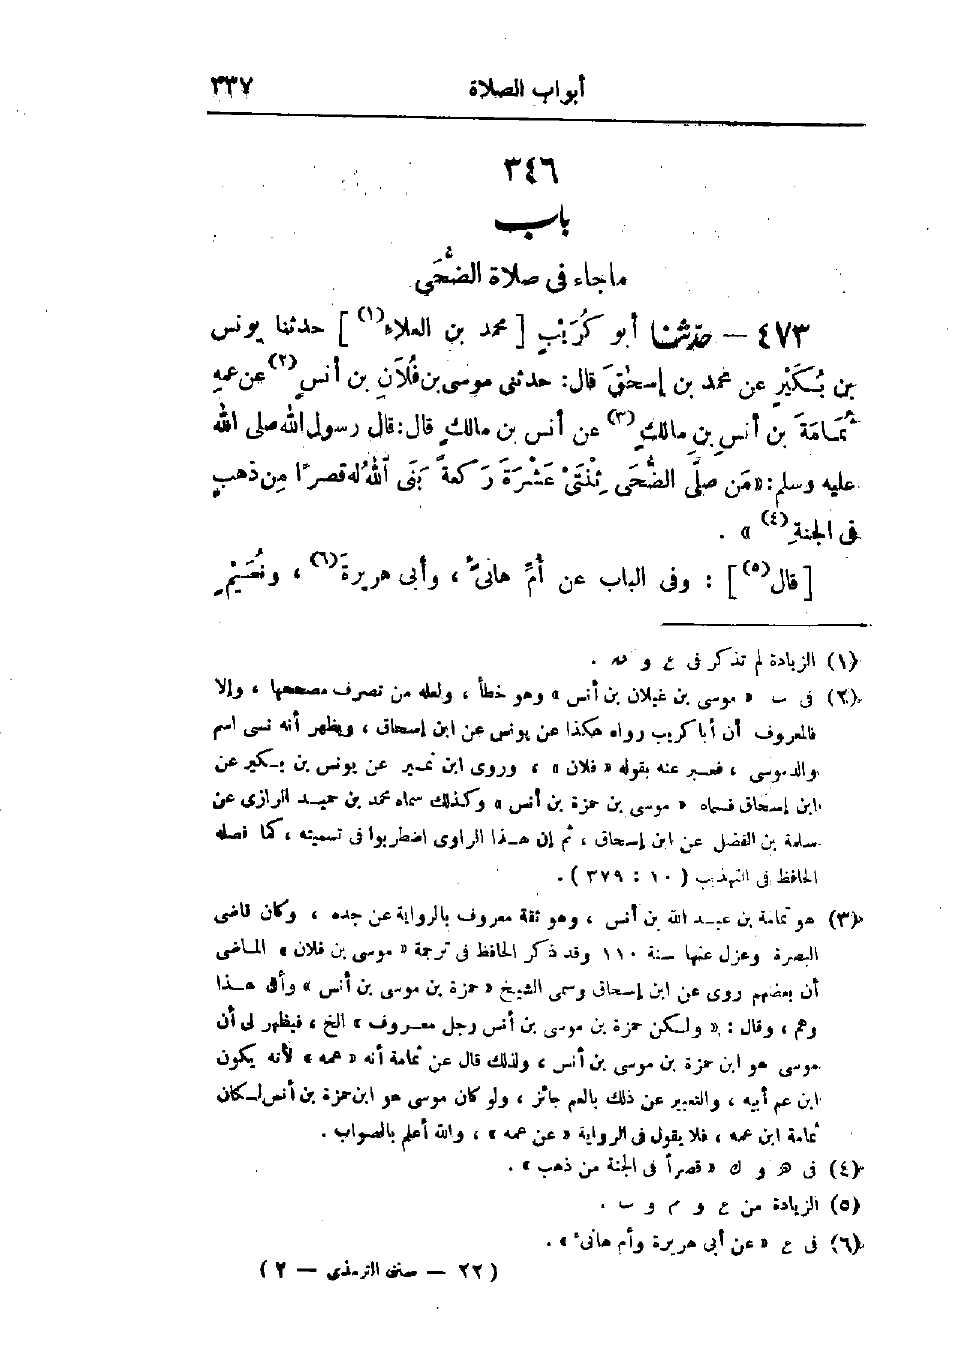 أبواب الصلاة ٣٣٧
٣٤٦
باب
ما جاء فى صلاة الضُّحَى
٤٧٣ — حدّثنا أبو كُرَيْبٍ [ محمد بن العلاء(١) ] حدثنا يونس
بن بُكَيْرٍ عن محمد بن إسحٰقَ قال: حدثنى موسى بن فُلَانِ بن أنسٍ(٢) عن عمهِ
ثُمَامَةَ بن أنسِ بنِ مالكٍ(٣) عن أنس بن مالكٍ قال: قال رسول الله صلى الله
عليه وسلم: «مَن صلَّى الضُّحَى ثِنْتَىْ عَشْرَةَ رَكعةً بَنَى اللهُ له قصرًا مِن ذهبٍ
فى الجنةِ(٤) » .
[ قال(٥) ] : وفى الباب عن أُمِّ هانىءٍ ، وأبى هريرةَ(٦) ، ونُعَيْمِ
(١) الزيادة لم تذكر فى ع و هـ .
(٢) فى ب « موسى بن غيلان بن أنس » وهو خطأ ، ولعله من تصرف مصححها ، وإلا
فالمعروف أن أبا كريب رواه هكذا عن يونس عن ابن إسحاق ، ويظهر أنه نسى اسم
والد موسى ، فعبر عنه بقوله « فلان » ، وروى ابن نمير عن يونس بن بكير عن
ابن إسحاق فسماه « موسى بن حمزة بن أنس » وكذلك سماه محمد بن حميد الرازى عن
سلمة بن الفضل عن ابن إسحاق ، ثم إن هذا الراوى اضطربوا فى تسميته ، كما فصله
الحافظ فى التهذيب ( ١٠ : ٣٧٩ ) .
(٣) هو ثمامة بن عبد الله بن أنس ، وهو ثقة معروف بالرواية عن جده ، وكان قاضى
البصرة وعزل عنها سنة ١١٠ وقد ذكر الحافظ فى ترجمة « موسى بن فلان » الماضى
أن بعضهم روى عن ابن إسحاق وسمى الشيخ « حمزة بن موسى بن أنس » وأن هذا
وهم ، وقال : « ولكن حمزة بن موسى بن أنس رجل معروف » الخ ، فيظهر لى أن
موسى هو ابن حمزة بن موسى بن أنس ، ولذلك قال عن ثمامة أنه « عمه » لأنه يكون
ابن عم أبيه ، والتعبير عن ذلك بالعم جائز ، ولو كان موسى هو ابن حمزة بن أنس لكان
ثمامة ابن عمه ، فلا يقول فى الرواية « عن عمه » ، والله أعلم بالصواب .
(٤) فى هـ و ك « قصراً فى الجنة من ذهب » .
(٥) الزيادة من ع و م و ب .
(٦) فى ع « عن أبى هريرة وأم هانىء » .
( ٢٢ — سنن الترمذى — ٢ )